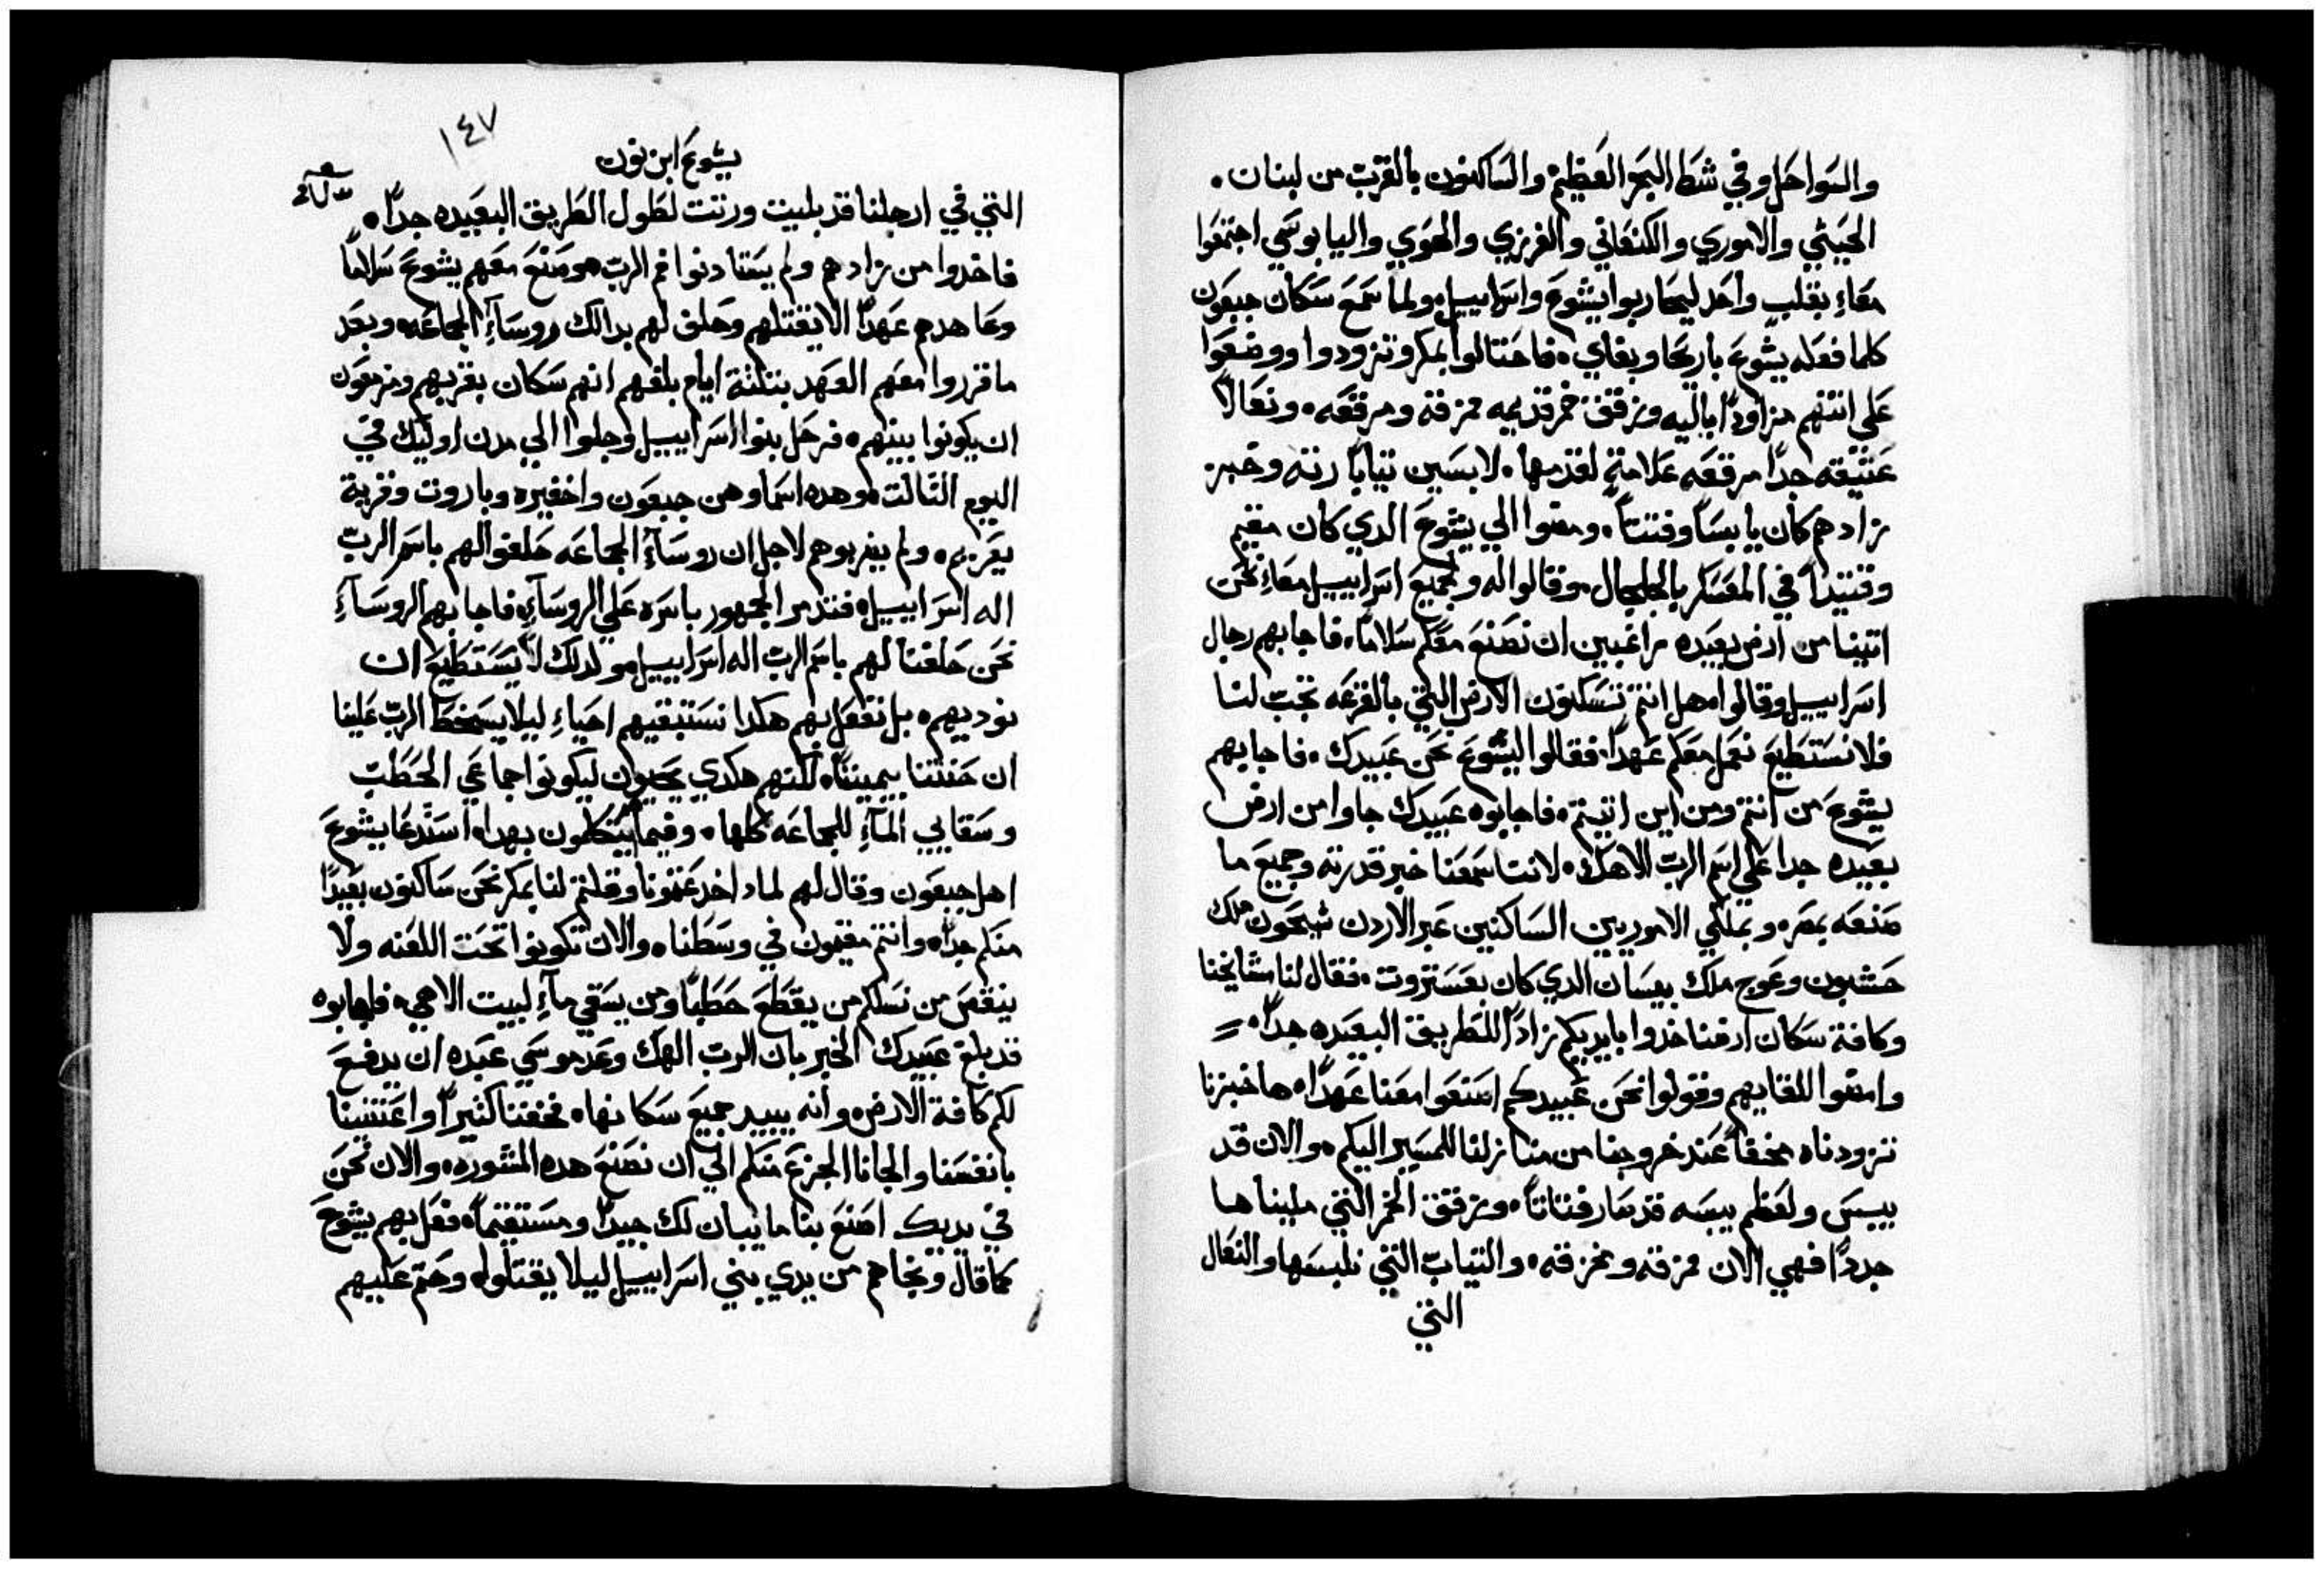 والسواحل وفي شط البحر العظيم والساكنون بالقرب من لبنان.
الحيثي والاموري والكنعاني والفرزي والهوي واليابوسي اجتمعوا
معاء بقلب واحد ليحاربوا يشوع واسراييل ولما سمع سكان جبعون
كلما فعله يشوع باريحا وبغاي. فاحتالوا بمكر وتزودوا ووضعوا
على اتنهم مزاودا باليه وزقق خمر قديمه ممزقه ومرقعه. ونعالا
عتيقه جدا مرقعه علامة لقدمها. لابسين تيابا رته وخبز
زادهم كان يابسا وفتتا. ومضوا الي يشوع الدي كان مقيم
وقتيدا في المعسكر بالجلجال وقالوا له ولجميع اسراييل معاء نحن
اتينا من ارض بعيده راغبين ان نصنع معكم سلاما. فاجابهم رجال
اسراييل وقالوا هل انتم تسكنون الارض التي بالقرعه تجب لنا
فلا نستطيع نعمل معكم عهدا. فقالوا ليشوع نحن عبيدك. فاجابهم
يشوع من انتم ومن اين اتيتم. فاجابوه عبيدك جاوا من ارض
بعيده جدا علي اسم الرب الاهك. لاننا سمعنا خبر قدرته وجميع ما
صنعه بمصر. وبملكي الاموريين الساكنين عبر الاردن شيحون ملك
حشبون وعوج ملك بيسان الدي كان بعستروت. فقال لنا مشايخنا
وكافة سكان ارضنا خدوا بايديكم زادا للطريق البعيده جدا.
وامضوا للقايهم وقولوا نحن عبيدكم اصنعوا معنا عهدا. ها خبزنا
تزودناه سخنا عند خروجنا من منازلنا للمسير اليكم. والان قد
يبس ولعظم يبسه قد صار فتاتا. وزقق الخمر التي مليناها
جددا فهي الان ممزقه ومخزقه. والتياب التي نلبسها والنعال
التي
١٤٧
يشوع ابن نون
التي في ارجلنا قد بليت ورتت لطول الطريق البعيده جدا.
فاخدوا من زادهم ولم يستادنوا فم الرب. وصنع معهم يشوع سلاما
وعاهدهم عهدا الا يقتلهم وحلف لهم بدالك روسآء الجماعه. وبعد
ما قرروا معهم العهد بتلتة ايام بلغهم انهم سكان بقربهم ومزمعون
ان يكونوا بينهم. فرحل بنوا اسراييل وجلوا الي مدن اوليك في
اليوم التالت. وهده اسماوهن جبعون واخفيره وباروت وقرية
يعريم. ولم يضربوهم لاجل ان روسآء الجماعه حلفوا لهم باسم الرب
اله اسراييل. فتدمر الجمهور باسره علي الروسآء. فاجابهم الروسآء
نحن حلفنا لهم باسم الرب اله اسراييل. ولدلك لا نستطيع ان
نوديهم. بل نفعل بهم هكدا نستبقيهم احياء ليلا يسخط الرب علينا
ان حنتنا بيميننا. لكنهم هكدي يحيون ليكونوا جماعي الحطب
وسقايي المآء للجماعه كلها. وفيما يتكلمون بهدا. استدعا يشوع
اهل جبعون وقال لهم لمادا خدعتمونا وقلتم لنا بمكر نحن ساكنون بعيدا
منكم جدا. وانتم مقيمون في وسطنا. والان تكونوا تحت اللعنه ولا
ينقص من نسلكم من يقطع حطبا ومن يسقي مآء لبيت الاهي. فاجابوه
قد بلغ عبيدك الخبر بان الرب الهك وعد موسي عبده ان يدفع
لكم كافة الارض. وانه يبيد جميع سكانها. فخفنا كتيرا واعتنينا
بانفسنا والجانا الجزع منكم الي ان نصنع هده المشوره. والان نحن
في يديك اصنع بنا ما يبان لك جيدا ومستقيما. ففعل بهم يشوع
كما قال ونجاهم من يدي بني اسراييل ليلا يقتلوا. وحتم عليهم